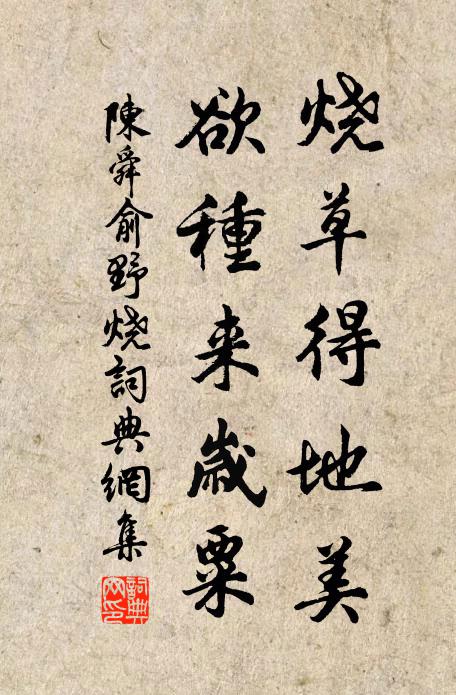 烧草得地美
欲種来歲粟
陳舜俞野烧詞典網集
詞典網印